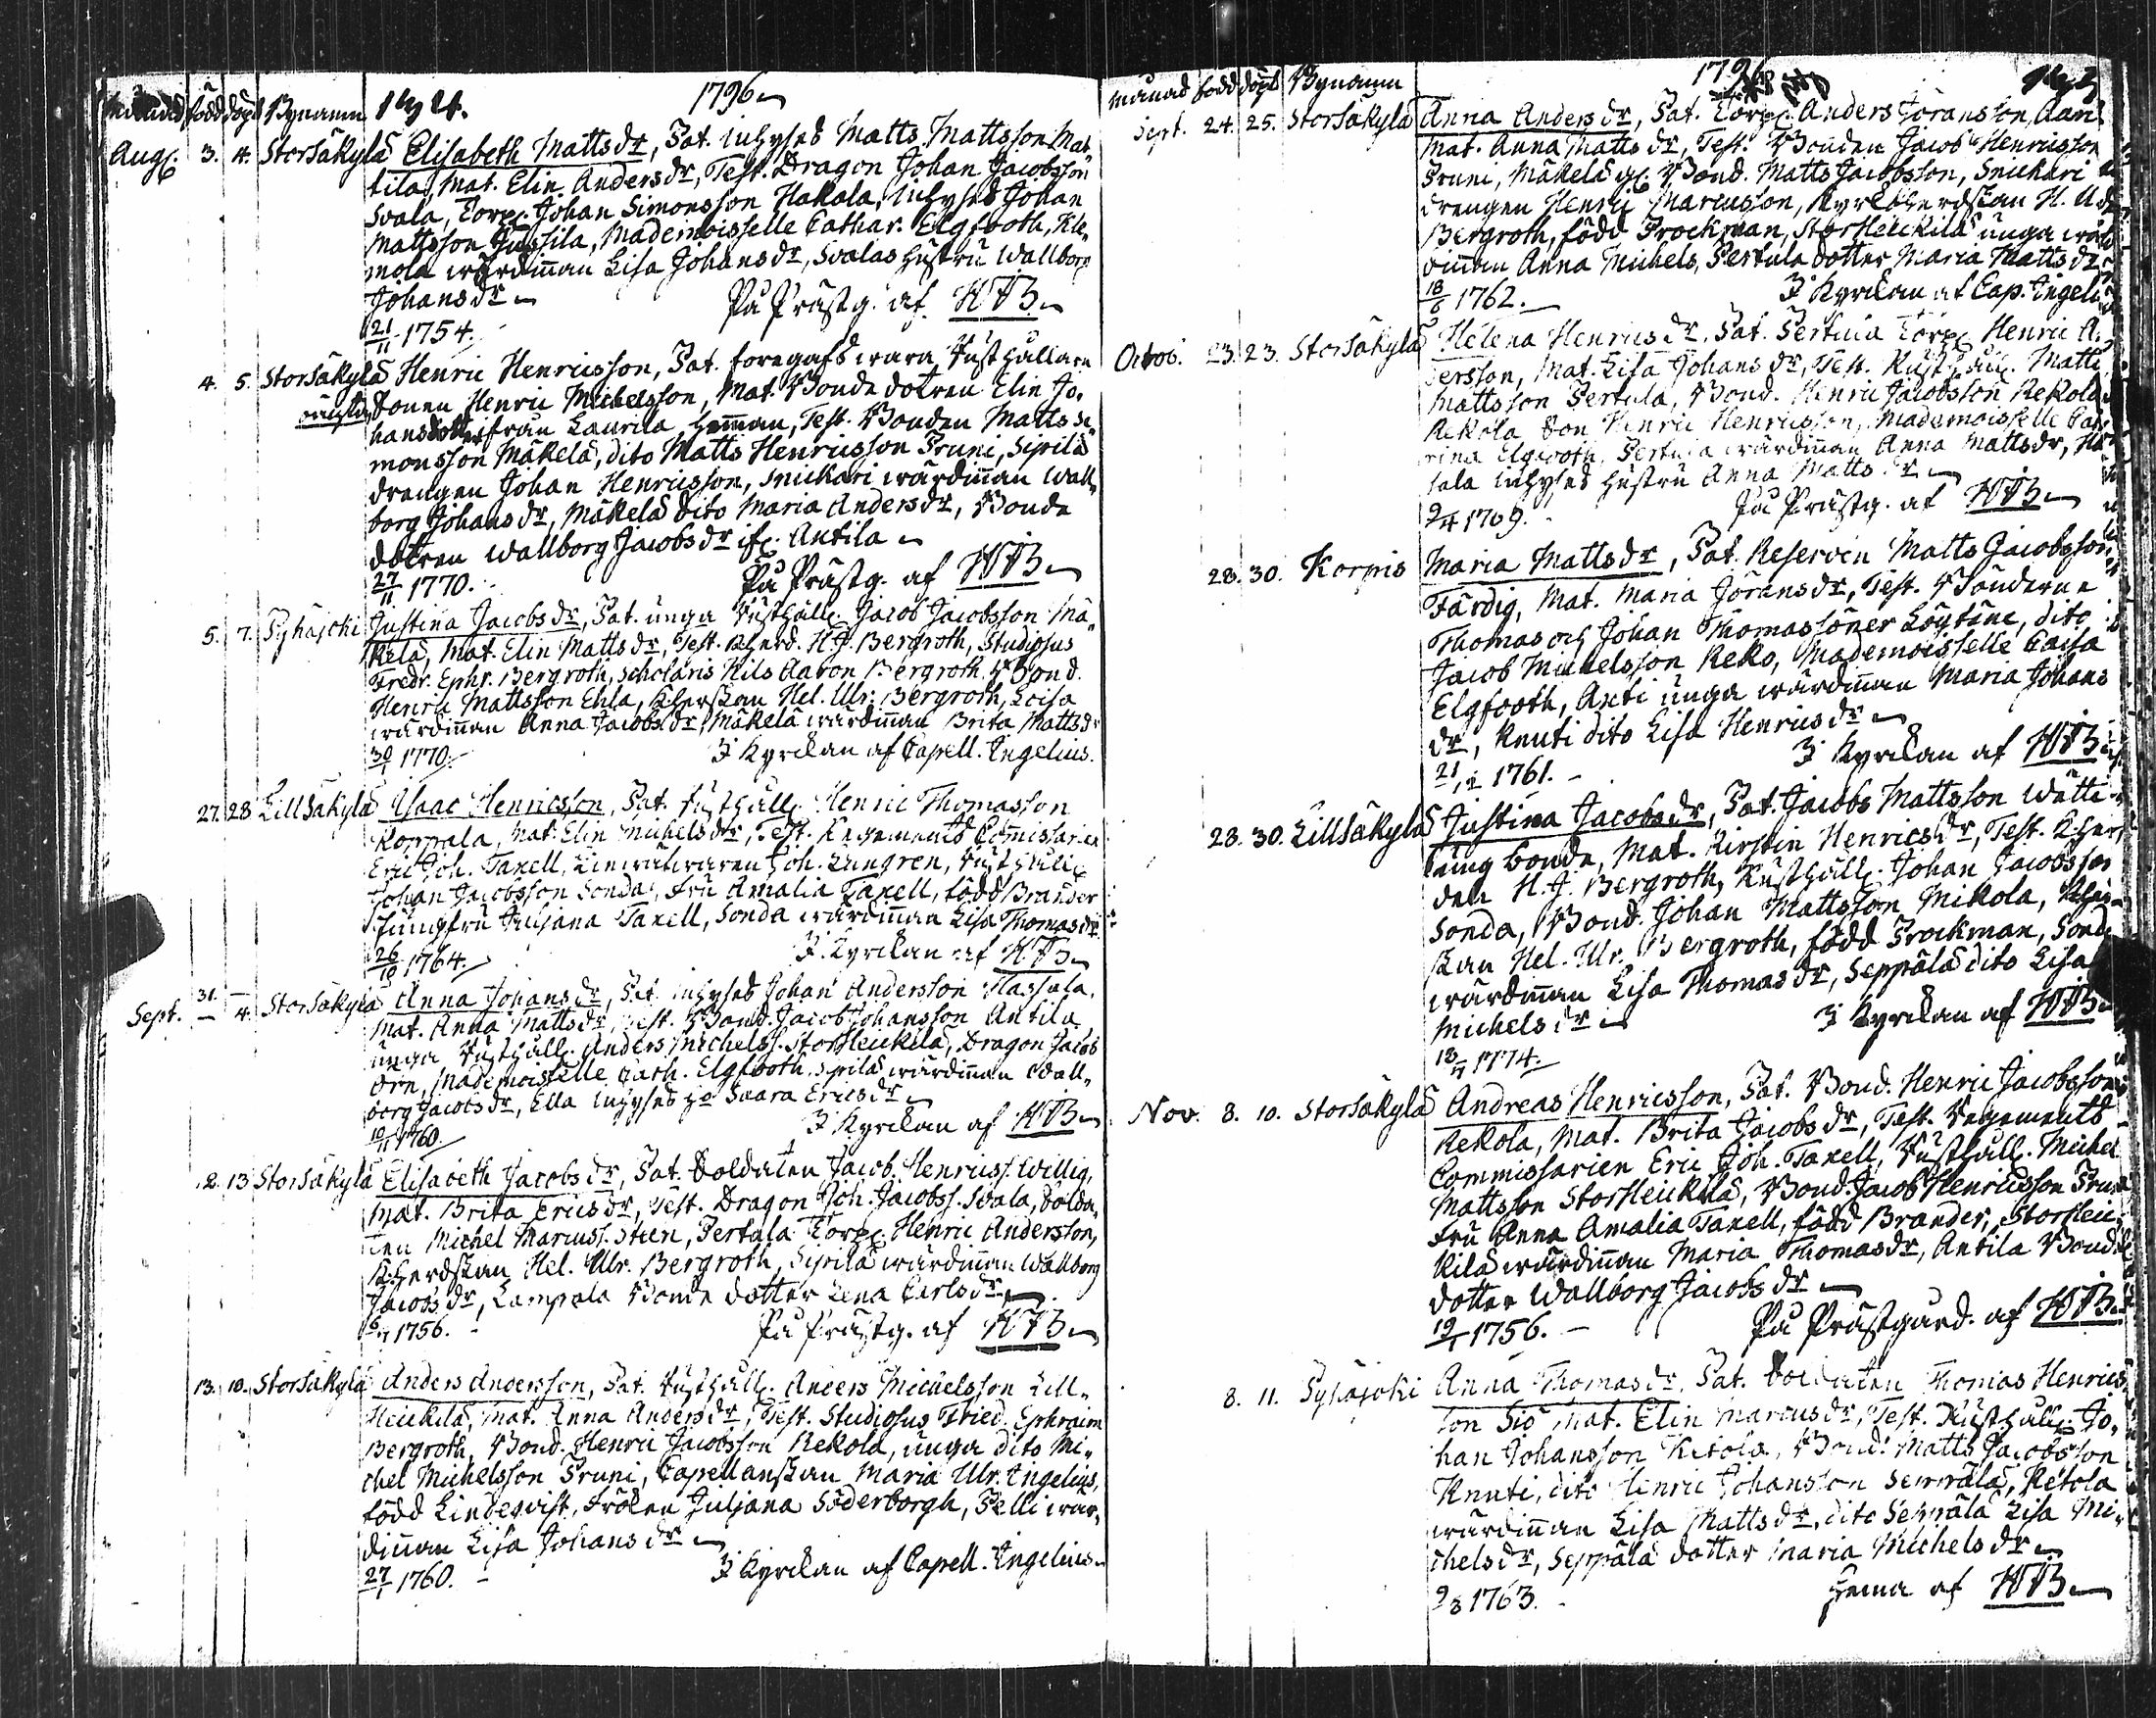 Månad född döpt Bynamn 1796
Aug. 3. 4. Storsäkylä Elisabeth Matts dr, Pat. Inhyses Matts Mattsson Mat-
tila, Mat. Elin Anders dr, Test. Dragon Johan Jacobsson
Svala, Torp. Johan Simonsson Hakala, Inhyses Johan
Mattsson Jussila, Mademoiselle Cathar. Elgfooth, Kle-
mola wärdinnan Lisa Johans dr, Svalas hustru Wallborg
Johans dr
På Prästg. af HJB
21/11 1754.
4. 5. Storsäkylä Henric Henricsson, Pat. föregafs wara Rusthållare
oägta Sonen Henric Michelsson, Mat. Bonde dotren Elin Jo-
hansdotter ifrån Laurila Hemman, Test. Bonden Matts Si-
monsson Mäkelä, dito Matts Henricsson Pruni, Sipilä
drengen Johan Henricsson, Snickari wärdinnan Wall-
borg Johans dr, Mäkelä dito Maria Anders dr, Bonde
dotren Wallborg Jacobs dr if. Antila
På Prästg. af HJB
27/11 1770.
5. 7. Pyhäjoki Justina Jacobs dr, Pat. unga Rusthåll. Jacob Jacobsson Mä-
kelä, Mat. Elin Matts dr, Test. KHerd. H.J. Bergroth, Studiosus
Fredr. Ephr. Bergroth, Scholaris Nils Aaron Bergroth, Bond.
Henric Mattsson Ehla, KHerskan Hel. Ulr. Bergroth, Loisa
wärdinnan Anna Jacobs dr, Mäkelä wärdinnan Brita Matts dr
I Kyrckan af Capell. Ingelius.
30/1 1770.
27. 28 Lillsäkylä Isaac Henricsson, Pat. Rusthåll. Henric Thomasson
Korpala, Mat. Elin Michels dr, Test. Regements Comissarien
Eric Joh. Taxell, Johan Jacobsson Sonda, Fru Amalia Taxell, född Brander
Jungfru Juliana Taxell, Sonda wärdinnan Lisa Thomas dr
I Kyrckan af HJB
26/10 1764.
31. —
Sept. — 4. Storsäkylä Anna Johans dr, Pat. Inhyses Johan Andersson Hassala,
Mat. Anna Matts dr, Test. Bond. Jacob Johansson Antila,
unga Rusthåll. Anders Michelss. Storheickilä, Dragon Jacob
Örn, Mademoiselle Cath. Elgfooth, Sipilä wärdinnan Wall-
borg Jacobs dr, Ella Inhyses ho Saara Erics dr
I Kyrckan af HJB
10/11 1760.
12. 13 Storsäkylä Elisabeth Jacobs dr, Pat. Soldaten Jacob Henricss. Willig,
Mat. Brita Erics dr, Test. Dragon Joh. Jacobss. Svala, Solda-
ten Michel Marcuss. Steen, Pertula Torp. Henric Andersson,
KHerdskan Hel. Ulr. Bergroth, Sipilä wärdinnan Wallborg
Jacobs dr, Lampola Bonde dotter Lena Carls dr
På Prästg. af HJB
6/7 1756.
13. 18. Storsäkylä Anders Andersson, Pat. Rusthåll. Anders Michelsson Lill-
Heickilä, Mat. Anna Anders dr, Test. Studiosus Fried. Ephraim
Bergroth, Bond. Henric Jacobsson Rekola, unga dito Mi-
chel Michelsson Pruni, Capellanskan Maria Ulr. Ingelius,
född Lindeqvist, Fröken Juliana Söderborgh, Pelli wär-
dinnan Lisa Johans dr
I Kyrckan af Capell. Ingelius
27/1 1760.
Månad född döpt Bynamn 1796
Sept. 24. 25. Storsäkylä Anna Anders dr, Pat. Torp. Anders Göransson
Mat. Anna Matts dr, Test. Bonden Jacob Henricsson
Pruni, Mäkelä Bond. Matts Jacobsson, Snickari
drengen Henric Marcusson, Kyrckherdskan H. U.
Bergroth, född Prockman, Storheickilä unga wär-
dinnan Anna Michels, Pertula dotter Maria Matts dr
I Kyrckan af Cap. Ingeli
18/6 1762.
Octob. 23. 23. Storsäkylä Helena Henrics dr, Pat. Pertula Torp. Henric An-
dersson, Mat. Lisa Johans dr, Test. Rusthåll. Matts
Mattsson Pertula, Bond. Henric Jacobsson Rekola
Rekola Son Henric Henricsson, Mademoiselle Cat-
rina Elgfooth, Pertula wärdinnan Anna Matts dr,
sala inhyses hustru Anna Matts dr
På Prästg. af HJB
9/4 1769.
28. 30. Korpis Maria Matts dr, Pat. Reserven Matts Jacobsson
Färdig, Mat. Maria Jörans dr, Test. Bönderne
Thomas och Johan Thomassöner Löytäne, dito
Jacob Michelsson Keko, Mademoiselle Caisa
Elgfooth, Anti unga wärdinnan Maria Johans
dr, Knuti dito Lisa Henrics dr
I Kyrckan af HJB
21/12 1761.
28. 30. Lillsäkylä Justina Jacobs dr, Pat. Jacobs Mattsson Wätti-
läing bonde, Mat. Kirstin Henrics dr, Test. KHer-
den H.J. Bergroth, Rusthåll. Johan Jacobsson
Sonda, Bond. Johan Mattsson Mikola, KHer-
skan Hel. Ulr. Bergroth, född Prockman, Sonda
wärdinnan Lisa Thomas dr, Seppälä dito Lisa
Michels dr
I Kyrckan af HJB
18/7 1774.
Nov. 8. 10. Storsäkylä Andreas Henricsson, Pat. Bond. Henric Jacobsson
Rekola, Mat. Brita Jacobs dr, Test. Regements
Commissarien Eric Joh. Taxell, Rusthåll. Michel
Mattsson Storheickilä, Bond. Jacob Henricsson Pruni
Fru Anna Amalia Taxell, född Brander, Storhei-
kilä wärdinnan Maria Thomas dr, Antila Bonde
dotter Wallborg Jacobs dr
På Prästgård. af HJB
19/1 1756.
8. 11. Pyhäjoki Anna Thomas dr, Pat. Soldaten Thomas Henrics-
son Siö Mat. Elin Marcus dr, Test. Rusthåll. Jo-
han Johansson Ketola, Bond. Matts Jacobsson
Knuti, dito Henric Johansson Seppälä, Ketola
wärdinnan Lisa Matts dr, dito Seppälä Lisa Mi-
chels dr, Seppälä dotter Maria Michels dr
Hema af HJB
9/8 1763.